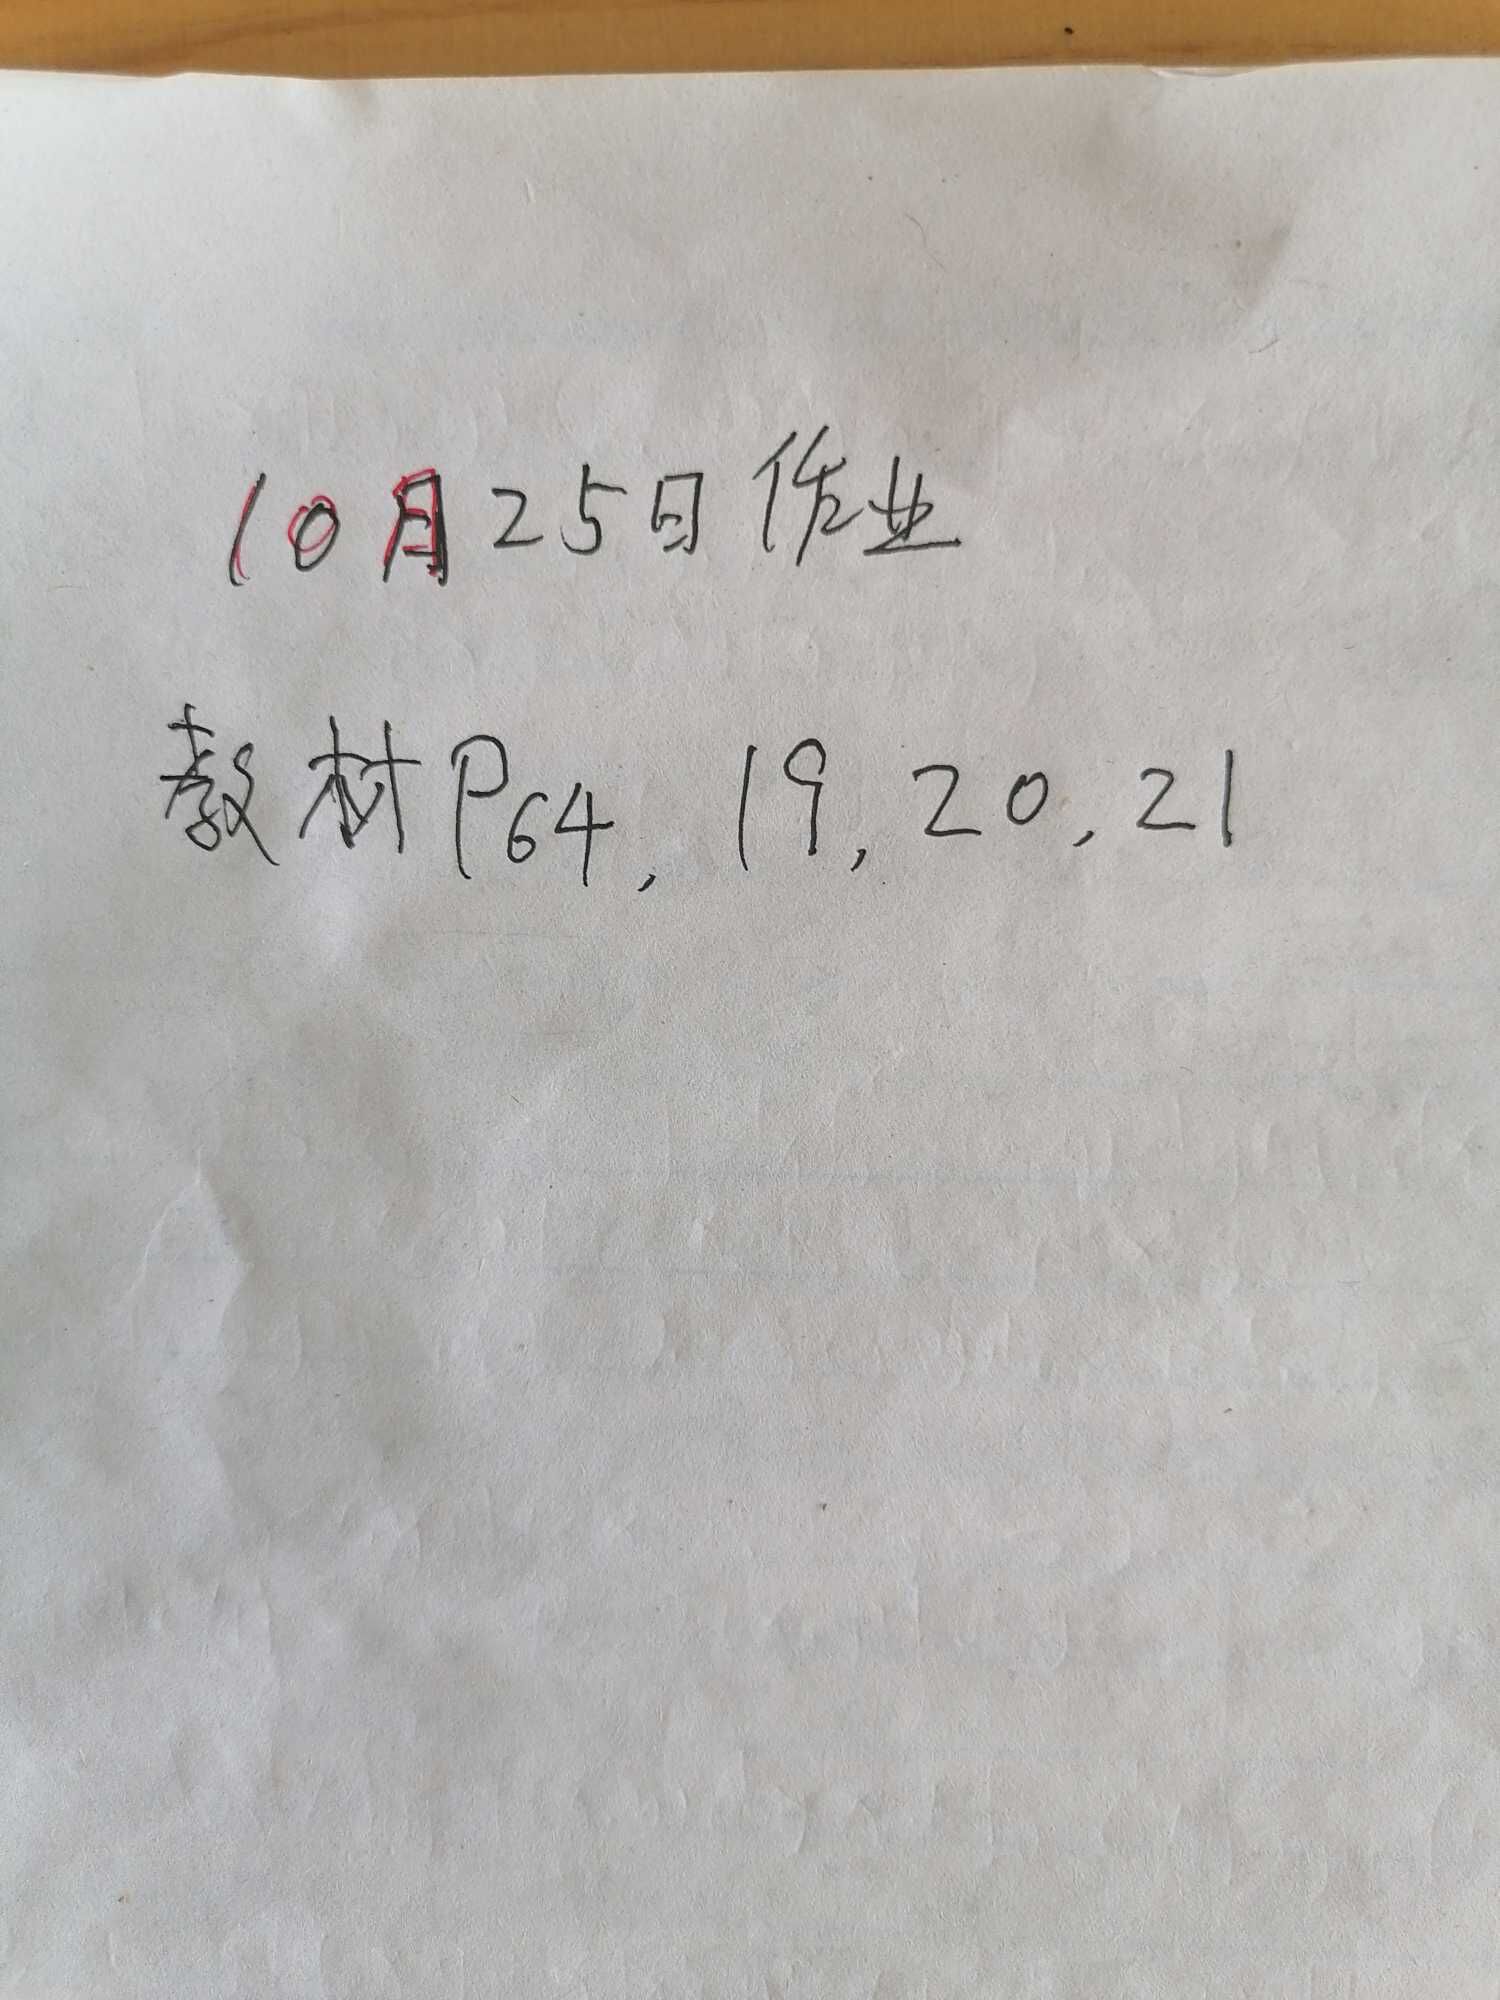 10月25日作业
教材P64, 19, 20, 21